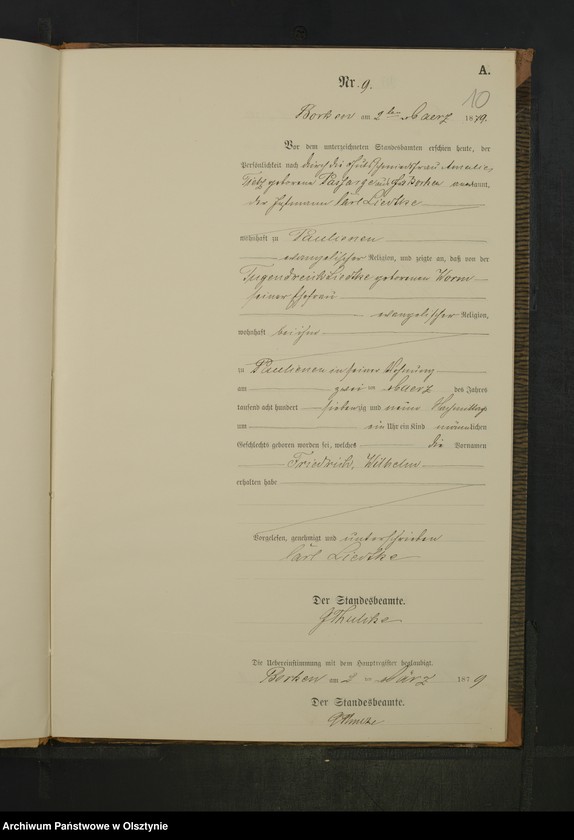 A.
Nr. 9.
10
Borken am 2ten Maerz 1879.
Vor dem unterzeichneten Standesbeamten erschien heute, der
Persönlichkeit nach durch die
geborene aus Borken anerkannt,
der Carl Liedtke
wohnhaft zu Paulienen
evangelischer Religion, und zeigte an, daß von der
Liedtke geborenen Worm
seiner Ehefrau
evangelischer Religion,
wohnhaft bei ihm
zu Paulienen in seiner Wohnung
am zwei ten Maerz des Jahres
tausend acht hundert siebenzig und neun Nachmittag
um ein Uhr ein Kind männlichen
Geschlechts geboren worden sei, welches die Vornamen
Friedrich, Wilhelm
erhalten habe
Vorgelesen, genehmigt und unterschrieben
Carl Liedtke
Der Standesbeamte.
Die Uebereinstimmung mit dem Hauptregister beglaubigt.
Borken am 2 ten März 1879
Der Standesbeamte.
Archiwum Państwowe w Olsztynie